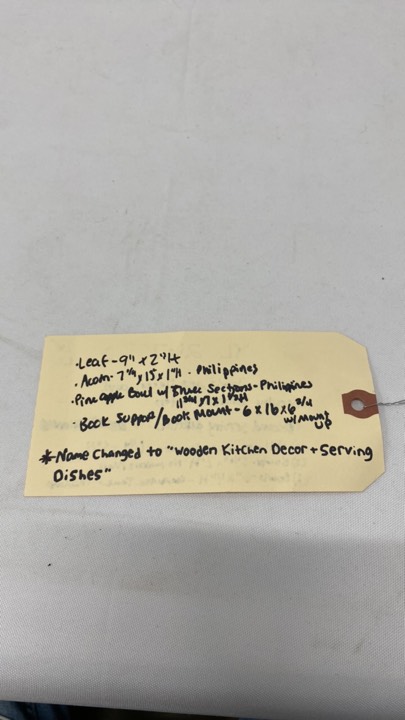 · Leaf - 9" x 2"H
· Acorn - 7 3/4 x 15 x 1"H - Philippines
· Pineapple Bowl w/ Three Sections - Philippines
11 3/4 x 7 x 1 1/2H
· Book Support/Book Mount - 6 x 16 x 6 3/4
w/ Mount
UP
* Name Changed to "Wooden Kitchen Decor + Serving
Dishes"